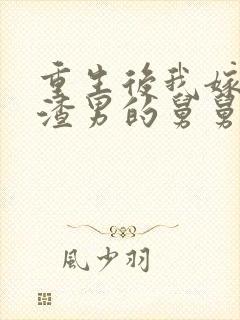 重生後我嫁
渣男的舅舅
風少羽